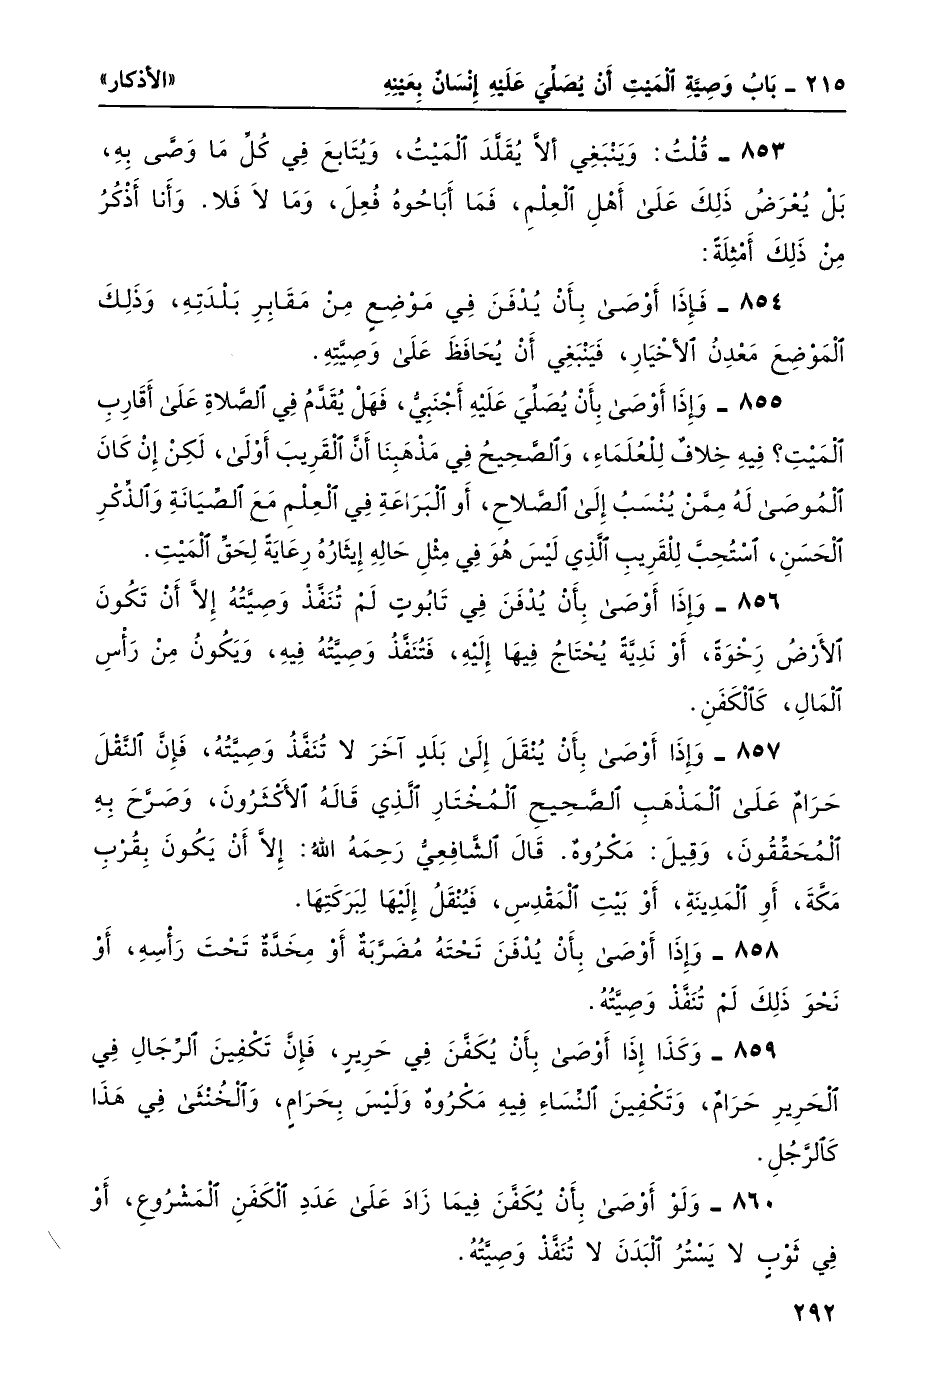 ٢١٥ ـ بَابُ وَصِيَّةِ ٱلْمَيْتِ أَنْ يُصَلِّيَ عَلَيْهِ إِنْسَانٌ بِعَيْنِهِ «الأذكار»
٨٥٣ ـ قُلْتُ: وَيَنْبَغِي ألاَّ يُقَلَّدَ ٱلْمَيْتُ، وَيُتَابعَ فِي كُلِّ مَا وَصَّى بِهِ،
بَلْ يُعْرَضُ ذَلِكَ عَلَىٰ أَهْلِ ٱلْعِلْمِ، فَمَا أَبَاحُوهُ فُعِلَ، وَمَا لاَ فَلا. وَأَنا أَذْكُرُ
مِنْ ذَلِكَ أَمْثِلَةً:
٨٥٤ ـ فَإِذَا أَوْصَىٰ بِأَنْ يُدْفَنَ فِي مَوْضِعٍ مِنْ مَقَابِرِ بَلْدَتِهِ، وَذَلِكَ
ٱلْمَوْضِعَ مَعْدِنُ ٱلأَخْيَارِ، فَيَنْبَغِي أَنْ يُحَافَظَ عَلَىٰ وَصِيَّتِهِ.
٨٥٥ ـ وَإِذَا أَوْصَىٰ بِأَنْ يُصَلِّيَ عَلَيْهِ أَجْنَبِيٌّ، فَهَلْ يُقَدَّمُ فِي ٱلصَّلاةِ عَلَىٰ أَقَارِبِ
ٱلْمَيْتِ؟ فِيهِ خِلافٌ لِلْعُلَمَاءِ، وَٱلصَّحِيحُ فِي مَذْهَبِنَا أَنَّ ٱلْقَرِيبَ أَوْلَى، لَكِنْ إِنْ كَانَ
ٱلْمُوصَىٰ لَهُ مِمَّنْ يُنْسَبُ إِلَىٰ ٱلصَّلاحِ، أَو ٱلْبَرَاعَةِ فِي ٱلْعِلْمِ مَعَ ٱلصِّيَانَةِ وَٱلذِّكْرِ
ٱلْحَسَنِ، ٱسْتُحِبَّ لِلْقَرِيبِ ٱلَّذِي لَيْسَ هُوَ فِي مِثْلِ حَالِهِ إِيثَارُهُ رِعَايَةً لِحَقِّ ٱلْمَيْتِ.
٨٥٦ ـ وَإِذَا أَوْصَىٰ بِأَنْ يُدْفَنَ فِي تَابُوتٍ لَمْ تُنَفَّذْ وَصِيَّتُهُ إِلاَّ أَنْ تَكُونَ
ٱلأَرْضُ رَخْوَةً، أَوْ نَدِيَّةً يُحْتَاجُ فِيهَا إِلَيْهِ، فَتُنَفَّذُ وَصِيَّتُهُ فِيهِ، وَيَكُونُ مِنْ رَأْسِ
ٱلْمَالِ، كَٱلْكَفَنِ.
٨٥٧ ـ وَإِذَا أَوْصَىٰ بِأَنْ يُنْقَلَ إِلَىٰ بَلَدٍ آخَرَ لا تُنَفَّذُ وَصِيَّتُهُ، فَإِنَّ ٱلنَّقْلَ
حَرَامٌ عَلَىٰ ٱلْمَذْهَبِ ٱلصَّحِيحِ ٱلْمُخْتَارِ ٱلَّذِي قَالَهُ ٱلأَكْثَرُونَ، وَصَرَّحَ بِهِ
ٱلْمُحَقِّقُونَ، وَقِيلَ: مَكْرُوهٌ. قَالَ ٱلشَّافِعِيُّ رَحِمَهُ اللهُ: إِلاَّ أَنْ يَكُونَ بِقُرْبِ
مَكَّةَ، أَوِ ٱلْمَدِينَةِ، أَوْ بَيْتِ ٱلْمَقْدِسِ، فَيُنْقَلُ إِلَيْهَا لِبَرَكَتِهَا.
٨٥٨ ـ وَإِذَا أَوْصَىٰ بِأَنْ يُدْفَنَ تَحْتَهُ مُضَرَّبَةٌ أَوْ مِخَدَّةٌ تَحْتَ رَأْسِهِ، أَوْ
نَحْوَ ذَلِكَ لَمْ تُنَفَّذْ وَصِيَّتُهُ.
٨٥٩ ـ وَكَذَا إِذَا أَوْصَىٰ بِأَنْ يُكَفَّنَ فِي حَرِيرٍ، فَإِنَّ تَكْفِينَ ٱلرِّجَالِ فِي
ٱلْحَرِيرِ حَرَامٌ، وَتَكْفِينَ ٱلنِّسَاءِ فِيهِ مَكْرُوهٌ وَلَيْسَ بِحَرَامٍ، وَٱلْخُنْثَىٰ فِي هَذَا
كَٱلرَّجُلِ.
٨٦٠ ـ وَلَوْ أَوْصَىٰ بِأَنْ يُكَفَّنَ فِيمَا زَادَ عَلَىٰ عَدَدِ ٱلْكَفَنِ ٱلْمَشْرُوعِ، أَوْ
فِي ثَوْبٍ لا يَسْتُرُ ٱلْبَدَنَ لا تُنَفَّذْ وَصِيَّتُهُ.
٢٩٢